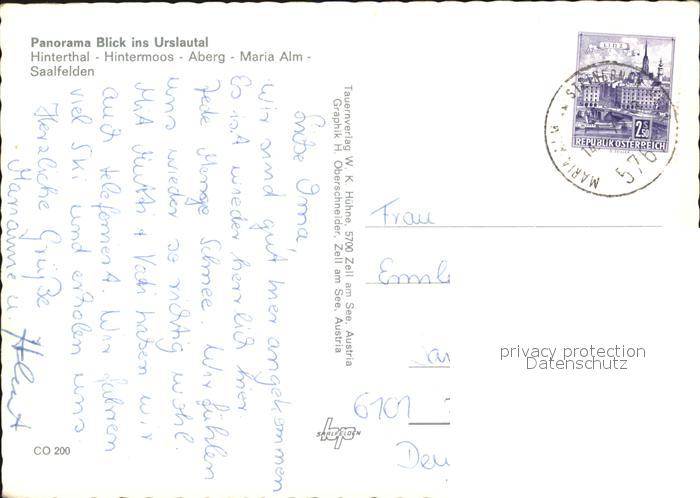 Panorama Blick ins Urslautal
Hinterthal - Hintermoos - Aberg - Maria Alm -
Saalfelden
Liebe Oma,
wir sind gut hier angekommen
Es ist wieder herrlich hier.
Jede Menge Schnee. Wir fühlen
uns wieder so richtig wohl.
Mit Mutti + Vati haben wir
auch telefoniert. Wir fahren
viel Ski und erholen uns.
Herzliche Grüße
Marianne u.
CO 200
Tauernverlag W. K. Hühne, 5700 Zell am See, Austria
Graphik H. Oberschneider, Zell am See, Austria
SAALFELDEN
LINZ
2 S 50
REPUBLIK ÖSTERREICH
MARIA ALM
576
Frau
6101
privacy protection
Datenschutz